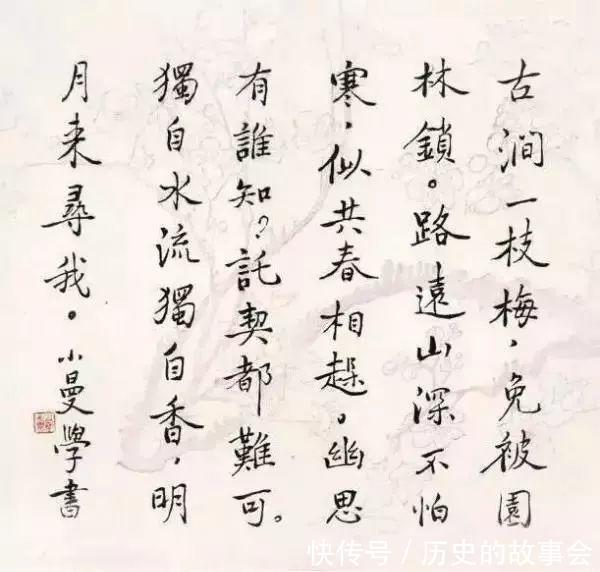 古澗一枝梅，免被園
林鎖。路遠山深不怕
寒，似共春相趓。幽思
有誰知？託契都難可。
獨自水流獨自香，明
月来尋我。小曼學書
快传号/历史的故事会